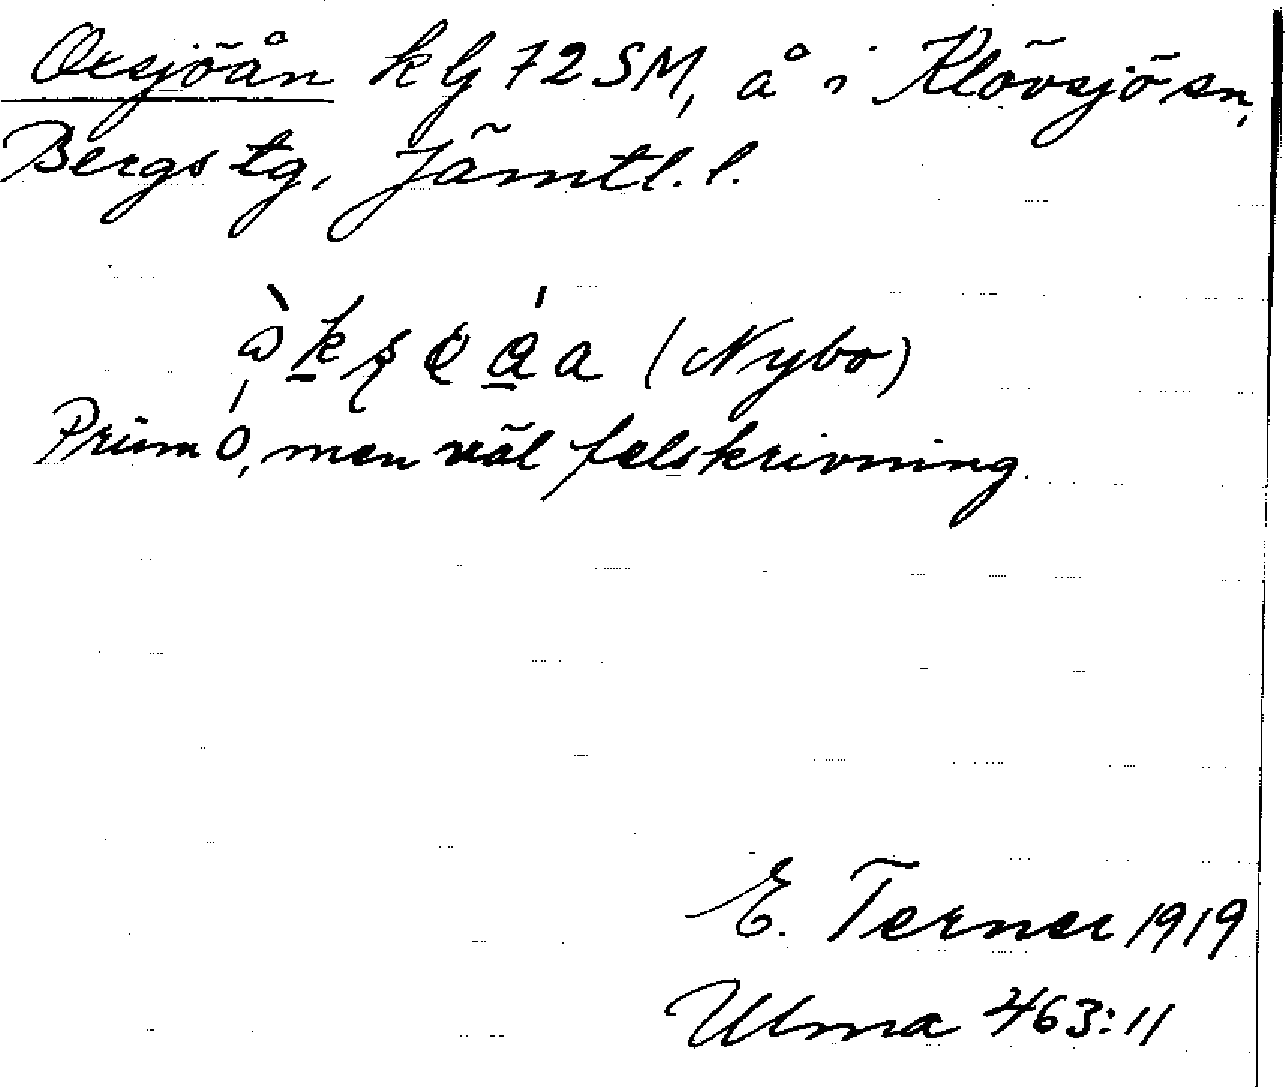 Oxsjöån k lj 72 SM, å i Klövsjö sn,
Bergs tg, Jämtl. l.
(Nybo)
Prim O, men väl felskrivning.
E. Terner 1919
Ulma 463:11